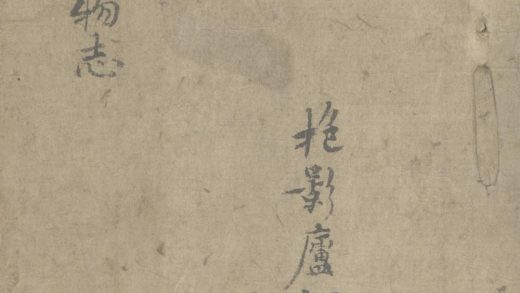 物志
抱影廬